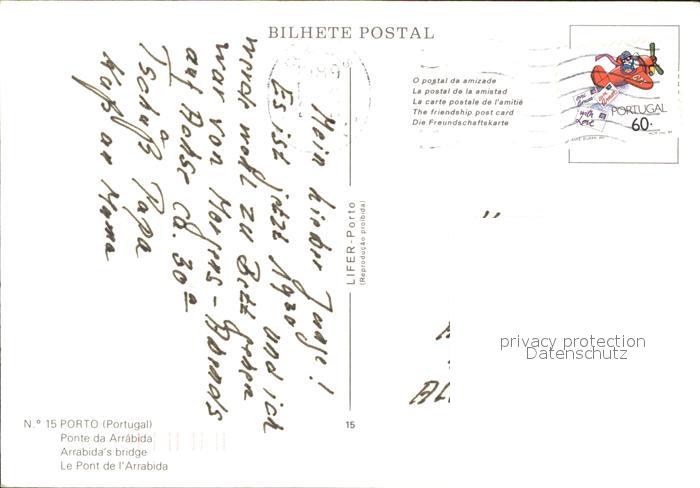 BILHETE POSTAL
O postal da amizade
La postal de la amistad
La carte postale de l'amitiè
The friendship post card
Die Freundschaftskarte
with Love
PORTUGAL
60.
Mein lieber Junge!
Es ist jetzt und ich
werde wohl zu Bett gehen
war von Morgens - Abends
auf Achse ca. 30°
Tschüß Papa
Mama
LIFER-Porto
(Reprodução proibida)
15
privacy protection
Datenschutz
N.º 15 PORTO (Portugal)
Ponte da Arrábida
Arrabida's bridge
Le Pont de l'Arrabida